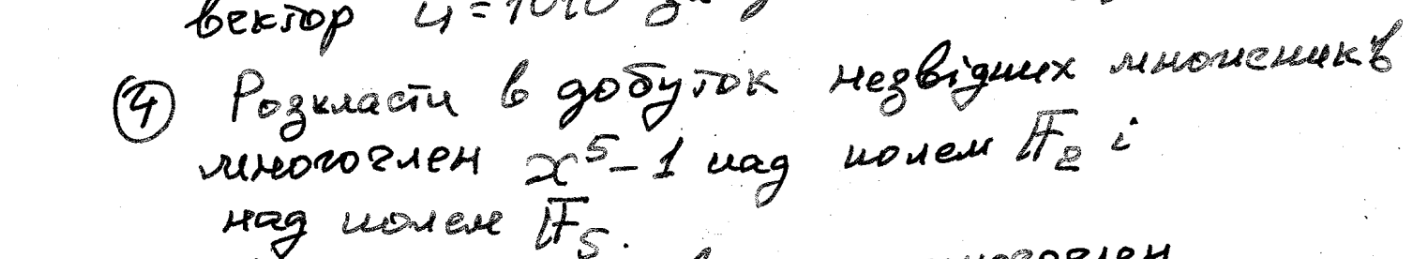 вектор u = 1010
④ Розкласти в добуток незвідних множників
многочлен x⁵-1 над полем 𝔽₂ і
над полем 𝔽₅.
многочлен